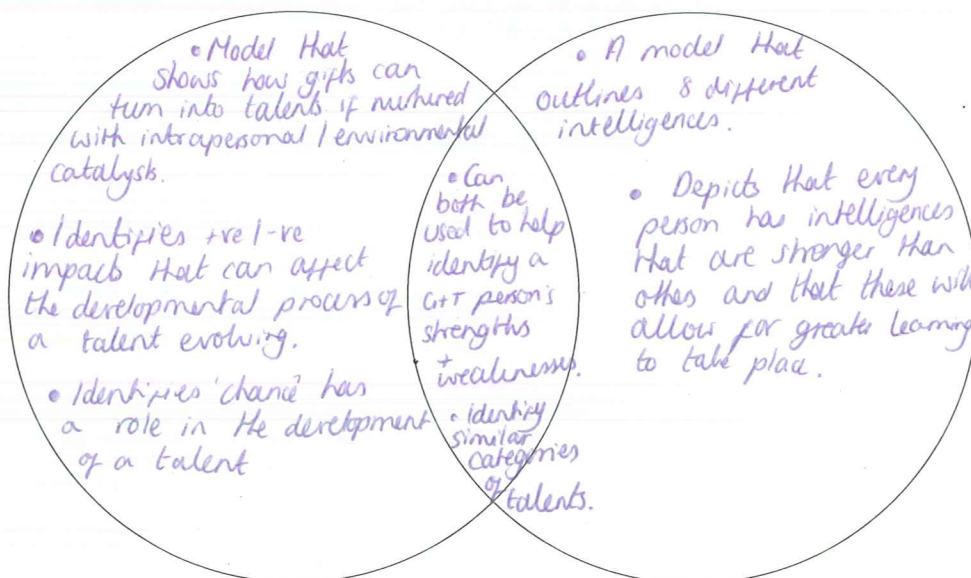 • Model that
shows how gifts can
turn into talents if nurtured
with intrapersonal / environmental
catalysts.
• Identifies +ve / -ve
impacts that can affect
the developmental process of
a talent evolving.
• Identifies 'chance' has
a role in the development
of a talent
• Can
both be
used to help
identify a
G+T person's
strengths
+
weaknesses.
• Identify
similar
categories
of
talents.
• A model that
outlines 8 different
intelligences.
• Depicts that every
person has intelligences
that are stronger than
others and that these will
allow for greater learning
to take place.